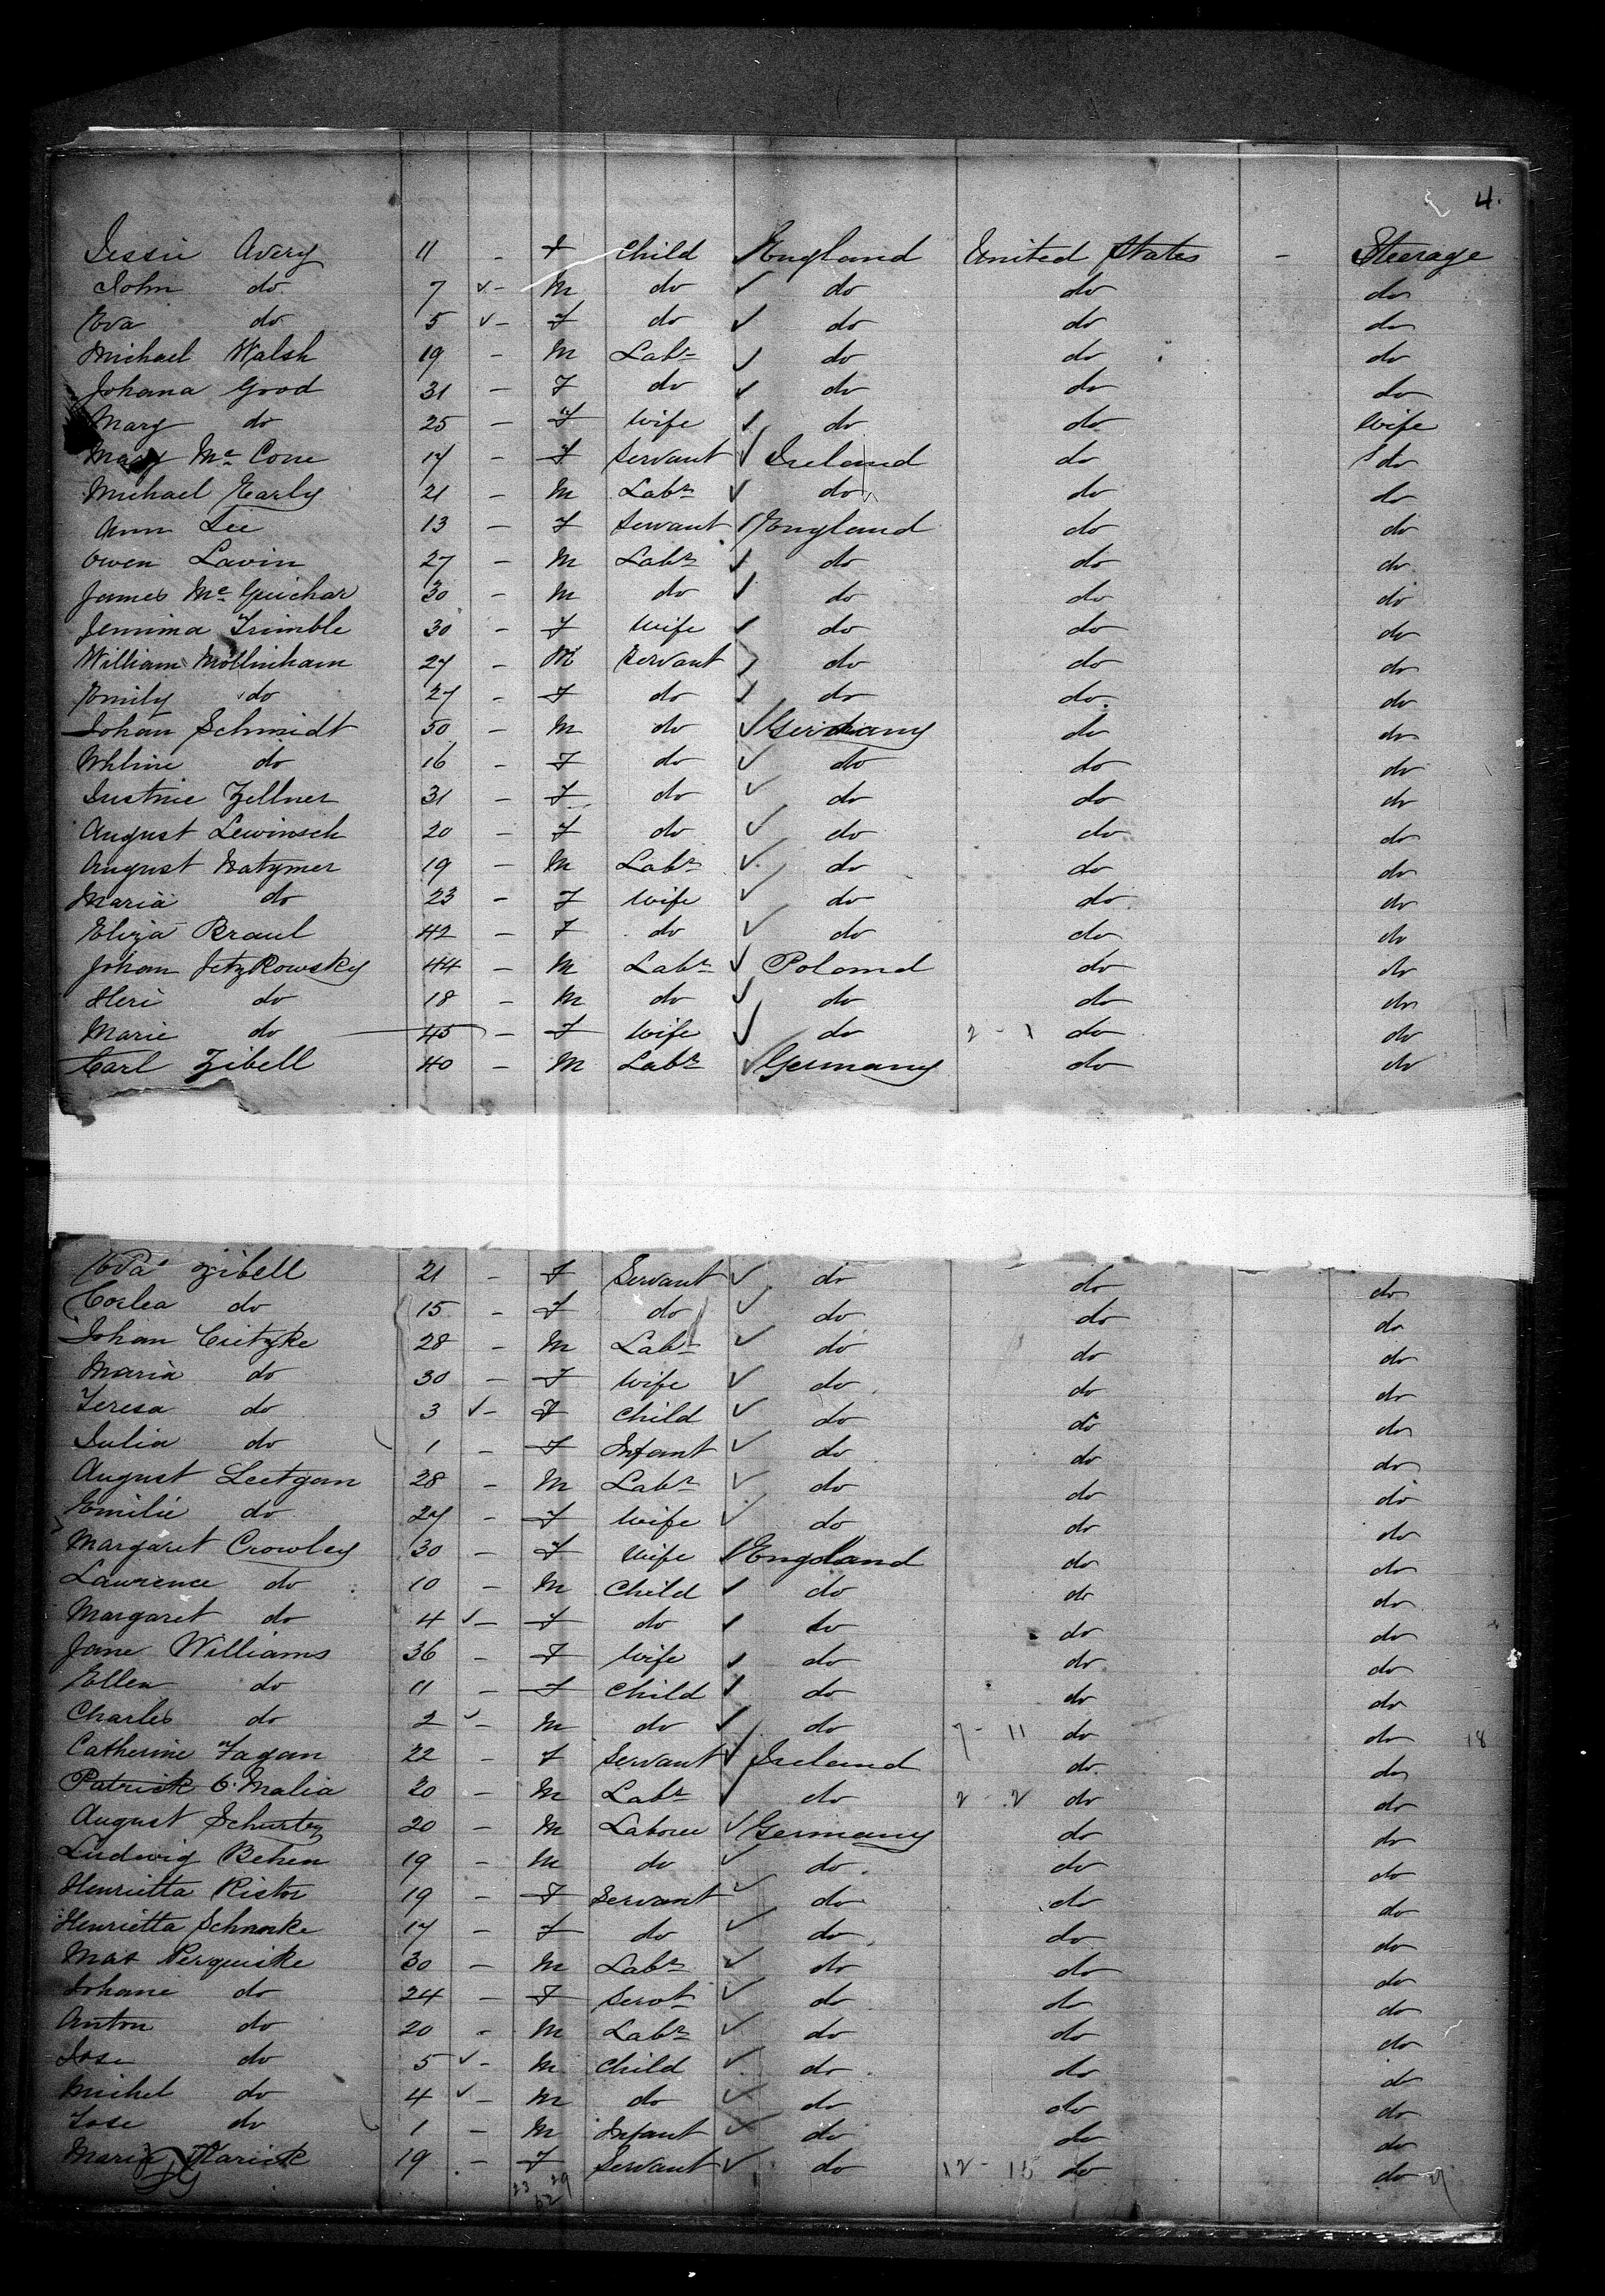 4.
Jessie Avery 11 - F Child England United States - Steerage
John do 7 ✓ - M do ✓ do do do
Eva do 5 ✓ - F do ✓ do do do
Michael Walsh 19 - M Labr ✓ do do do
Johana Good 31 - F do ✓ do do do
Mary do 25 - F Wife ✓ do do Wife
Mary Mc Cone 17 - F Servant ✓ Ireland do do
Michael Early 21 - M Labr ✓ do do do
Ann Lee 13 - F Servant ✓ England do do
Owen Lavin 27 - M Labr ✓ do do do
James Mc Guichar 30 - M do ✓ do do do
Jemima Trimble 30 - F Wife ✓ do do do
William Mollinham 27 - M Servant do do do
Emily do 27 - F do ✓ do do do
Johan Schmidt 50 - M do ✓ Germany do do
do 16 - F do ✓ do do do
Justine Zellner 31 - F do ✓ do do do
August Lewinsch 20 - F do ✓ do do do
August Natzmer 19 - M Labr ✓ do do do
Maria do 23 - F Wife ✓ do do do
Eliza Braul 42 - F do ✓ do do do
Johan Jetzkowsky 44 - M Labr ✓ Poland do do
Heri do 18 - M do ✓ do do do
Marie do 45 - F Wife ✓ do 2 - 1 do do
Carl Zibell 40 - M Labr ✓ Germany do do
Zibell 21 - F Servant ✓ do do do
do 15 - F do ✓ do do do
Johan Cietzke 28 - M Labr ✓ do do do
Maria do 30 - F Wife ✓ do do do
Teresa do 3 ✓ - F Child ✓ do do do
Julia do 1 - F Infant ✓ do do do
August Leetgan 28 - M Labr ✓ do do do
Emilie do 27 - F Wife ✓ do do do
Margaret Crowley 30 - F Wife ✓ England do do
Lawrence do 10 - M Child ✓ do do do
Margaret do 4 ✓ - F do ✓ do do do
Jane Williams 36 - F Wife ✓ do do do
Ellen do 11 - F Child ✓ do do do
Charles do 2 ✓ - M do ✓ do 7 - 11 do do 18
Catherine Fagan 22 - F Servant ✓ Ireland do do
Patrick O'Malia 20 - M Labr ✓ do 2 - 2 do do
August Schurtz 20 - M Laborer ✓ Germany do do
Ludwig Behen 19 - M do ✓ do do do
Henrietta Ristor 19 - F Servant ✓ do do do
Henrietta Schmoke 17 - F do ✓ do do do
Mat Perquiske 30 - M Labr ✓ do do do
Johane do 24 - F Servt ✓ do do do
Anton do 20 - M Labr ✓ do do do
Jose do 5 ✓ - M Child ✓ do do do
Michel do 4 ✓ - M do ✓ do do do
Jose do 1 - M Infant ✓ do do do
Maria 19 - F Servant ✓ do 12 - 15 do do
23 29
52